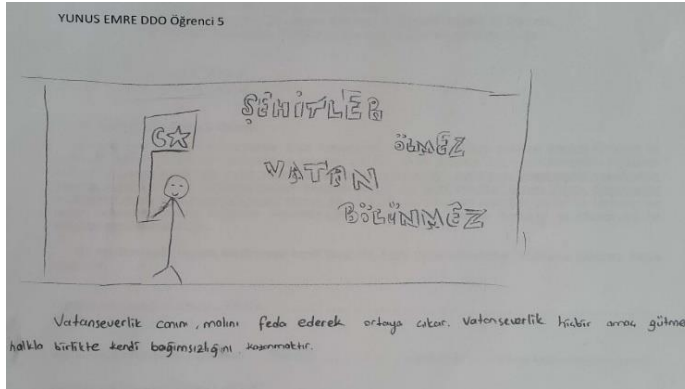 YUNUS EMRE DDO Öğrenci 5
ŞEHİTLER
ÖLMEZ
VATAN
BÖLÜNMEZ
Vatanseverlik canını, malını feda ederek ortaya çıkar. Vatanseverlik hiçbir amaç gütme
halkla birlikte kendi bağımsızlığını kazanmaktır.